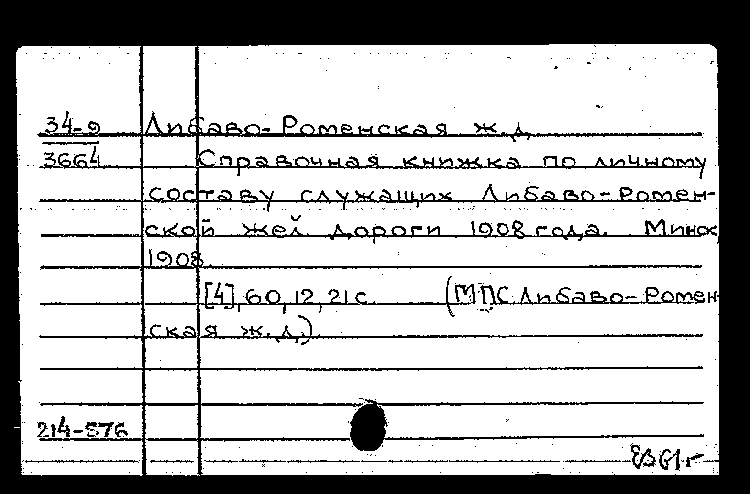 34-9 Либаво-Роменская ж.д.
3664 Справочная книжка по личному
составу служащих Либаво-Ромен-
ской жел дороги 1908 года. Минск,
1908
[4], 60, 12, 21 с. (МПС. Либаво-Ромен-
ская ж.д.)
214-576